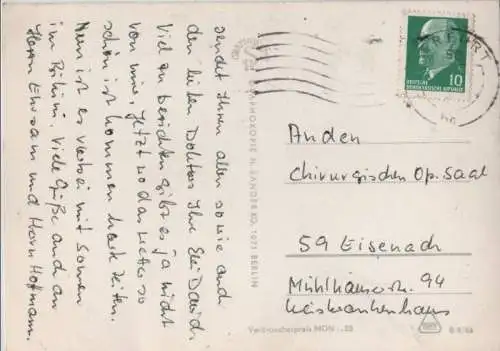 sendet Ihnen allen sowie auch
den lieben Doktors Ihre Elli David.
Viel zu berichten gibt es ja nicht
von mir, Jetzt wo das Wetter so
schön ist kommen heute Zeiten.
Nun ist es vorbei mit Sonnen
im Bikini. Viele Grüße auch an
Herrn Ehrsam und Herrn Hoffmann.
PHOKOPIE H. SANDER KG, 1071 BERLIN
ERFURT
10
DEUTSCHE
DEMOKRATISCHE REPUBLIK
An den
Chirurgischen Op. Saal
59 Eisenach
Mühlhäuserstr. 94
Kreiskrankenhaus
Verbraucherpreis MDN